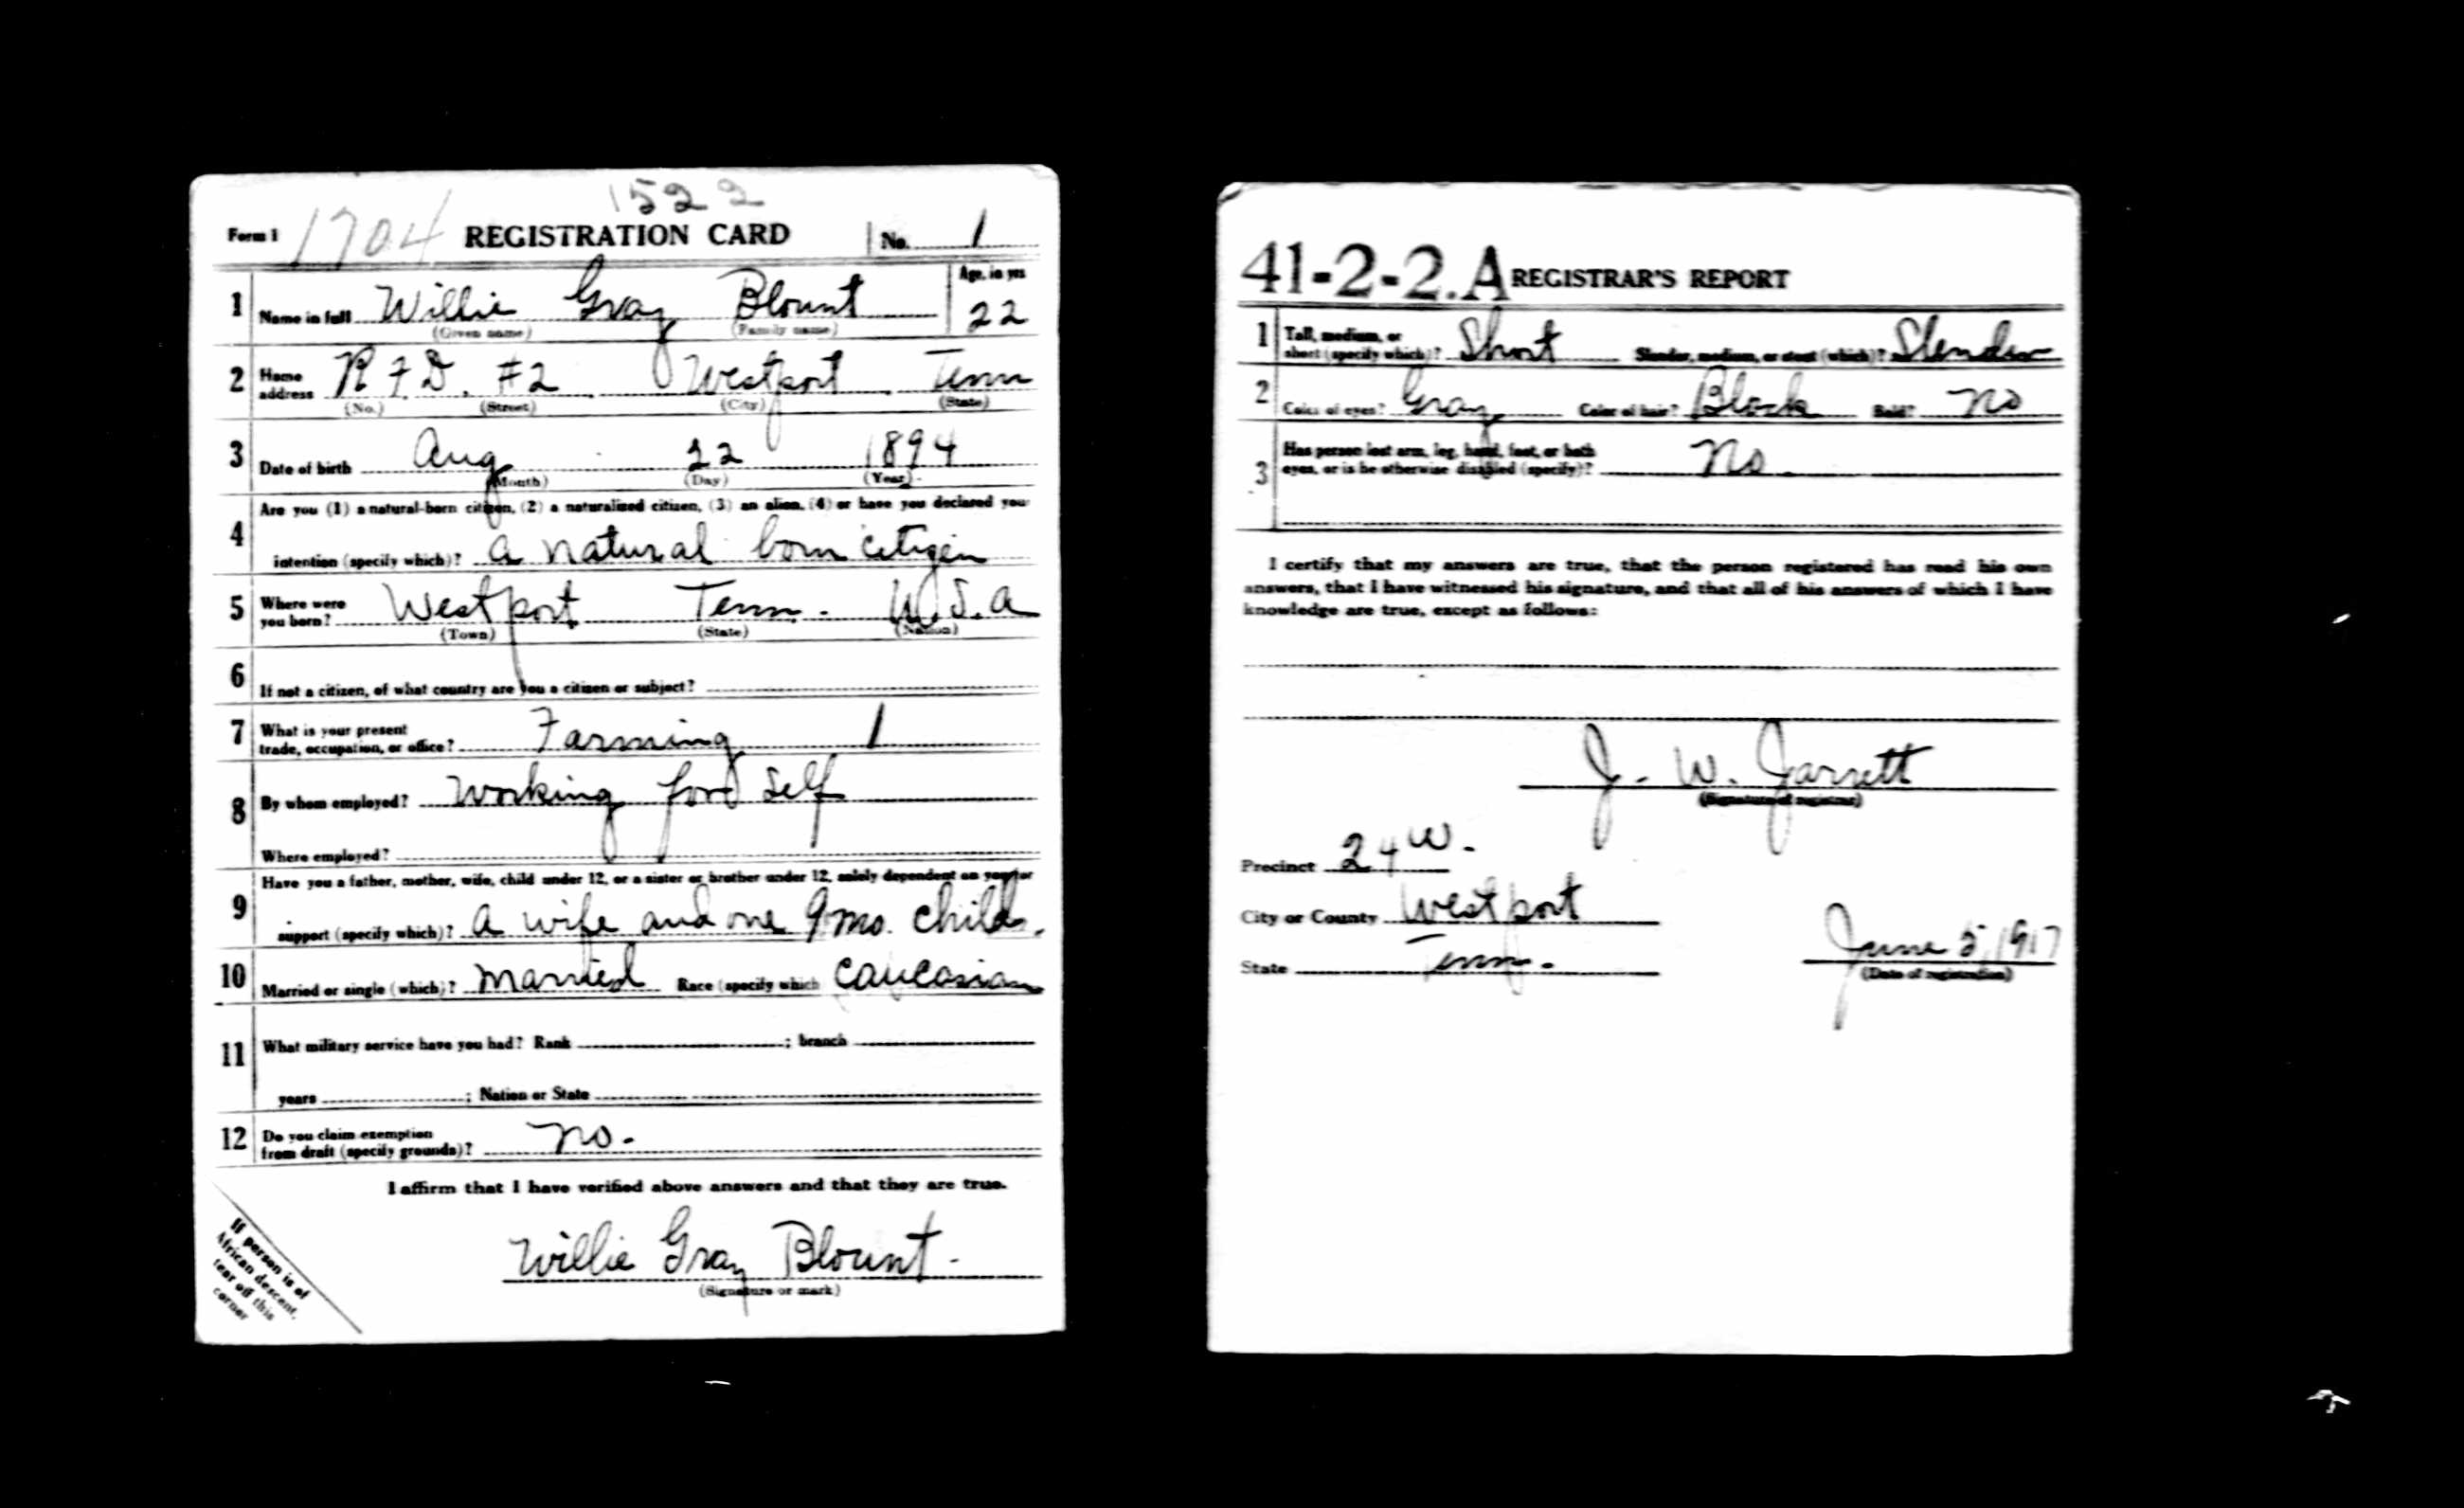 1522
Form 1 1704 REGISTRATION CARD No. 1
1 Name in full Willie Gray Blount Age, in yrs 22
(Given name) (Family name)
2 Home address R F D. #2 Westport Tenn
(No.) (Street) (City) (State)
3 Date of birth Aug 22 1894
(Month) (Day) (Year)
4 Are you (1) a natural-born citizen, (2) a naturalized citizen, (3) an alien, (4) or have you declared your
intention (specify which)? a natural born citizen
5 Where were you born? Westport Tenn. U.S.A
(Town) (State) (Nation)
6 If not a citizen, of what country are you a citizen or subject?
7 What is your present trade, occupation, or office? Farming 1
8 By whom employed? Working for Self
Where employed?
9 Have you a father, mother, wife, child under 12, or a sister or brother under 12, solely dependent on you for
support (specify which)? a wife and one 9 mo. child.
10 Married or single (which)? Married Race (specify which Caucasian
11 What military service have you had? Rank ; branch
years ; Nation or State
12 Do you claim exemption from draft (specify grounds)? no.
I affirm that I have verified above answers and that they are true.
Willie Gray Blount.
(Signature or mark)
If person is of
African descent,
tear off this
corner
41-2-2.A REGISTRAR'S REPORT
1 Tall, medium, or short (specify which)? Short Slender, medium, or stout (which)? Slender
2 Color of eyes? Gray Color of hair? Black Bald? no
3 Has person lost arm, leg, hand, foot, or both
eyes, or is he otherwise disabled (specify)? No.
I certify that my answers are true, that the person registered has read his own
answers, that I have witnessed his signature, and that all of his answers of which I have
knowledge are true, except as follows:
J. W. Jarrett
(Signature of registrar)
Precinct 24 W.
City or County Westport
State Tenn. June 5, 1917
(Date of registration)